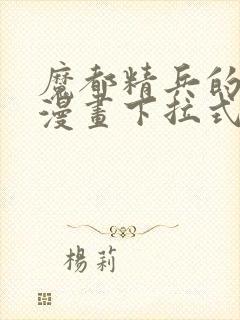 魔都精兵的
漫畫下拉式
楊莉